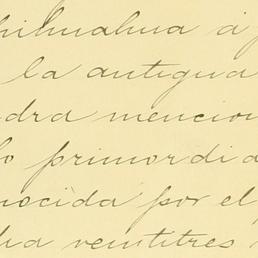 hihuahua á
la antigua
dra mencion
lo primordia
nocida por el
ha veintitres